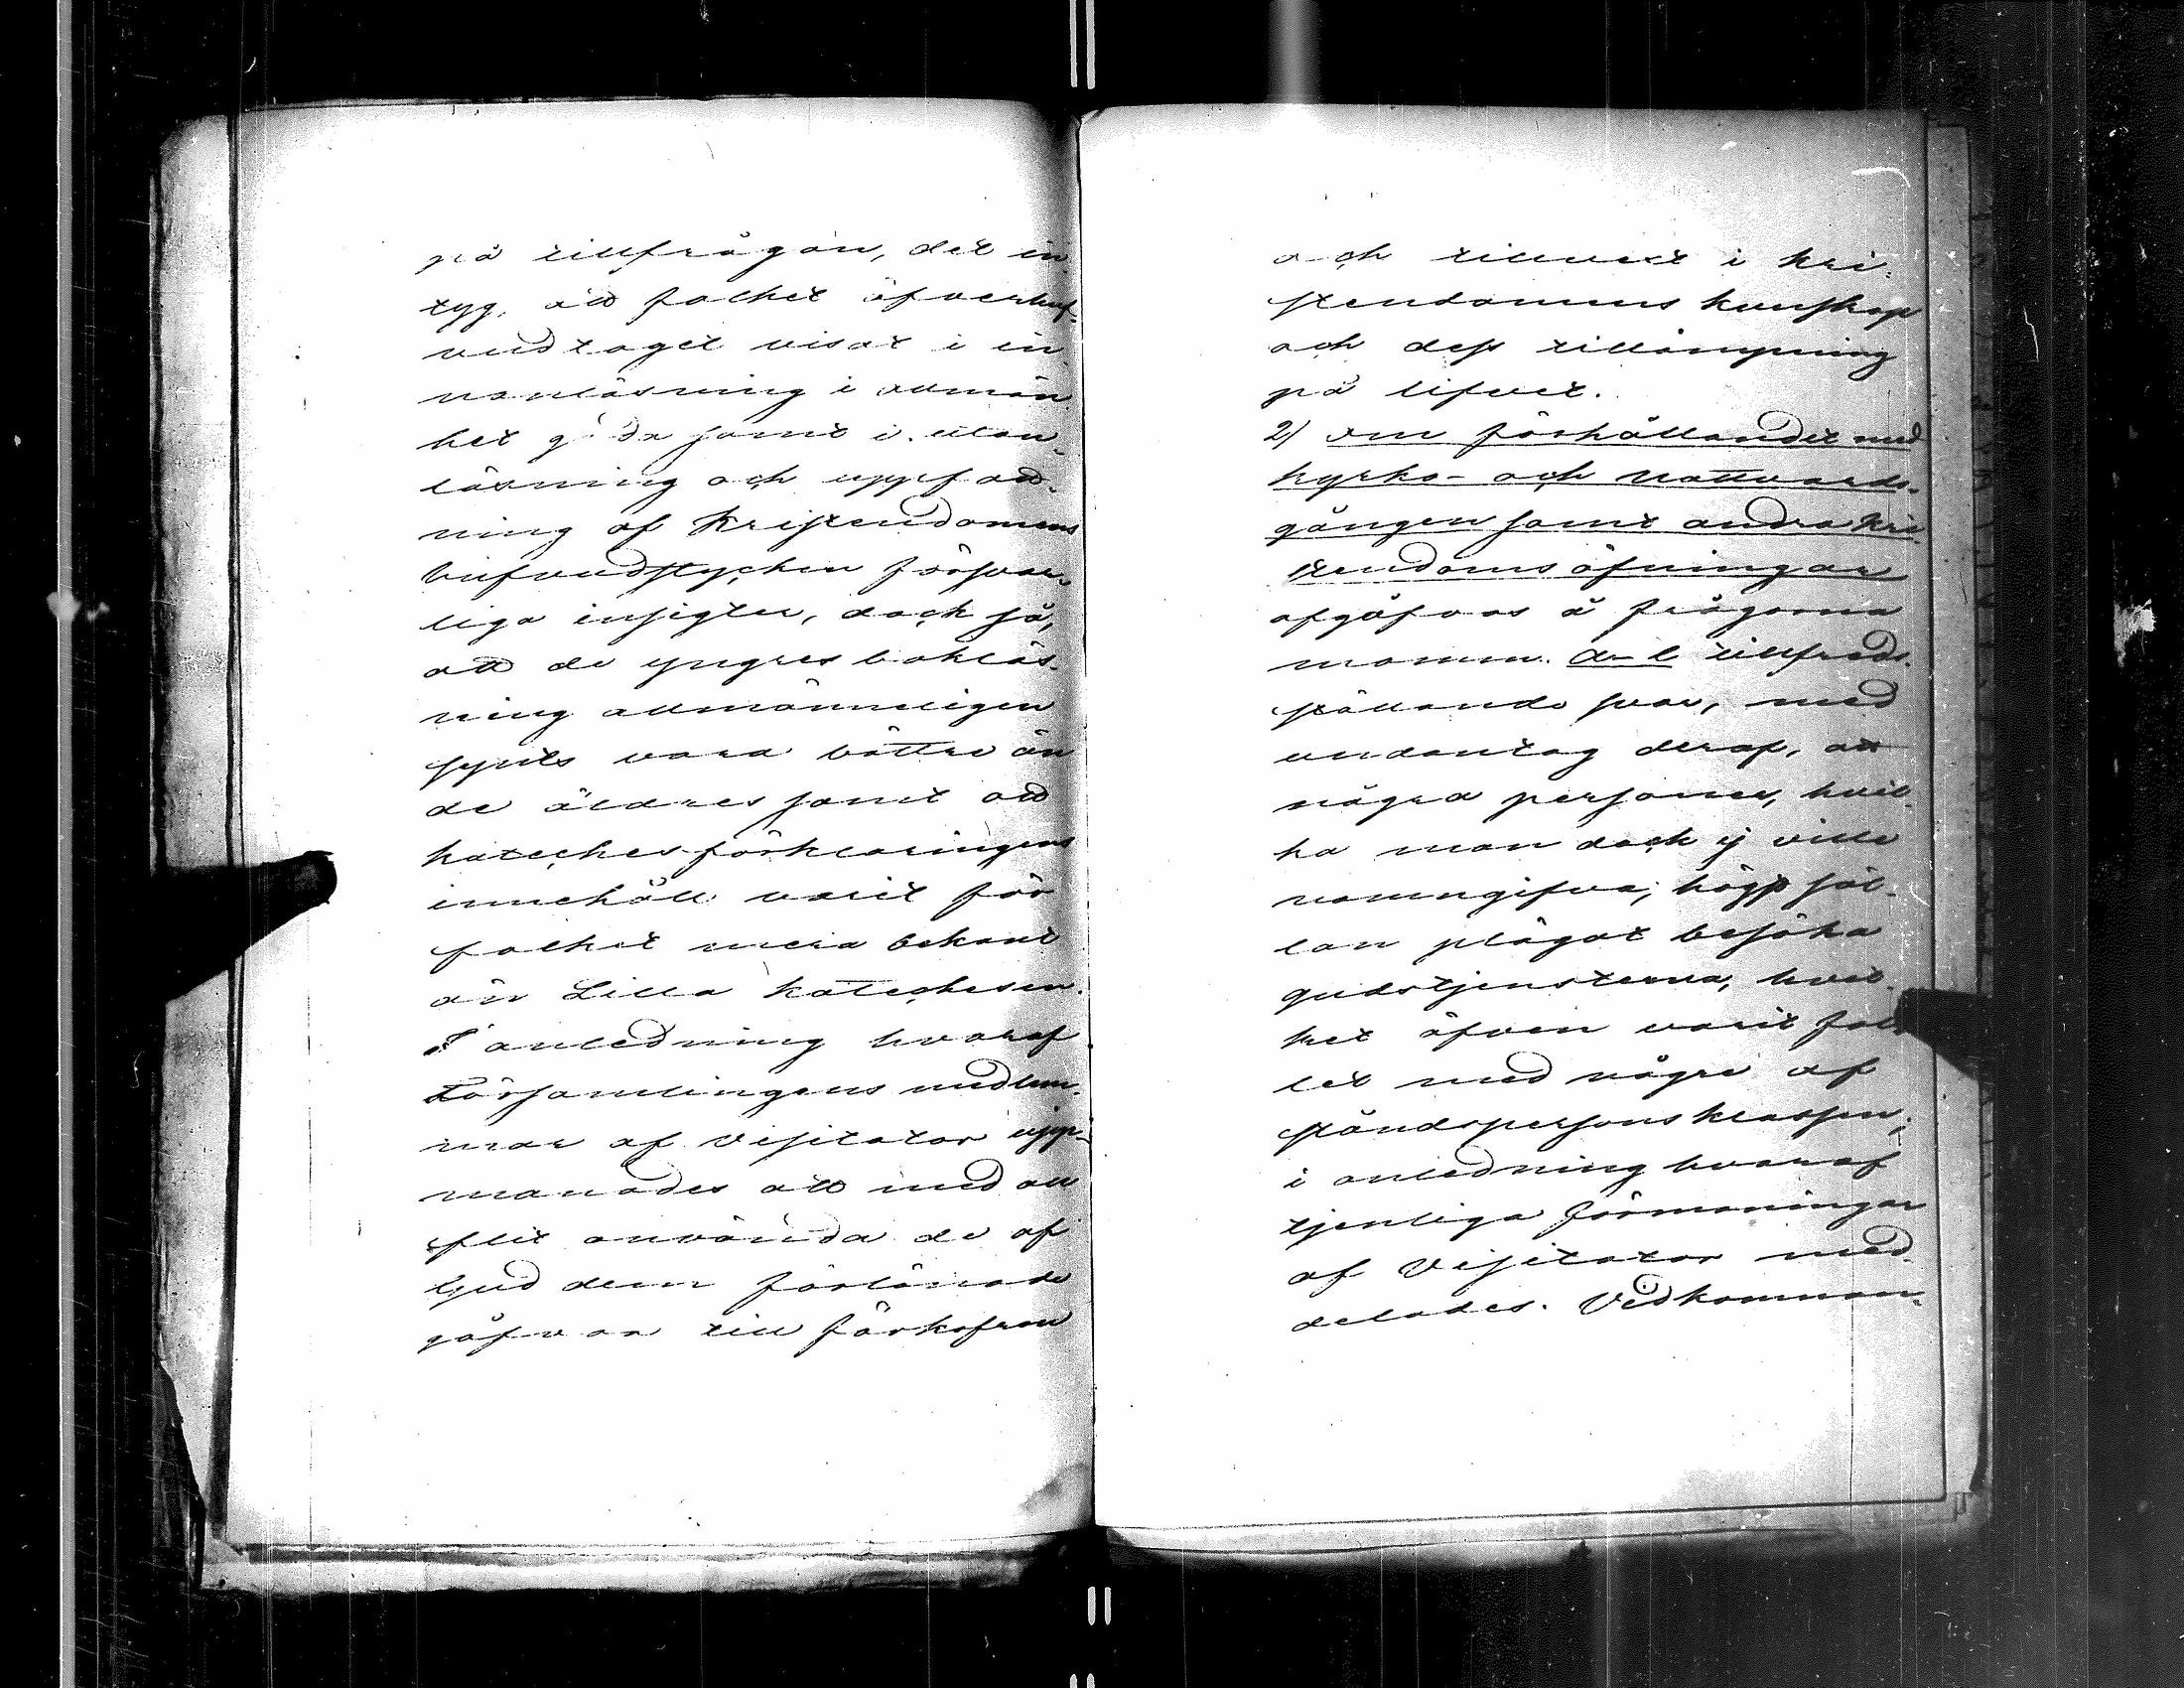 på tillfrågan, det in-
tyg, att folket öfverhuf-
vudtaget visat i in-
nanläsning i allmän-
het goda samt i utan-
läsning och uppfatt-
ning af Kristendomens
hufvudstycken försvar-
liga insigter, dock så,
att de yngres bokläs-
ning allmänneligen
synts vara bättre än
de äldres samt att
katechesförklaringens
innehåll varit för
folket mera bekant
än Lilla katechesen.
I anledning hvaraf
Församlingens medlem-
mar af Visitator upp-
manades att med all
flit använda de af
Gud dem förlänade
gåfvor till förkofran
och tillvext i kri-
stendomens kunskap
och dess tillämpning
på lifvet.
2) om förhållandet med
kyrko- och Nattvards-
gången samt andra Kri-
stendomsöfningar
afgåfvos å frågorna
momm. a-l tillfreds-
ställande svar, med
undantag deraf, att
några personer, hvil-
ka man dock ej ville
namngifva, högst säl-
lan plägat besöka
gudstjensterna, hvil-
ket äfven varit fal-
let med någre af
ståndspersons klassen;
i anledning hvaraf
tjenliga förmaningar
af Visitator med-
delades. Vedkomman-